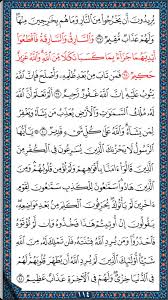 يُرِيدُونَ أَن يَخْرُجُوا۟ مِنَ ٱلنَّارِ وَمَا هُم بِخَٰرِجِينَ مِنْهَا
وَلَهُمْ عَذَابٌ مُّقِيمٌ ٣٧ وَٱلسَّارِقُ وَٱلسَّارِقَةُ فَٱقْطَعُوٓا۟
أَيْدِيَهُمَا جَزَآءًۢ بِمَا كَسَبَا نَكَٰلًا مِّنَ ٱللَّهِ وَٱللَّهُ عَزِيزٌ
حَكِيمٌ ٣٨ فَمَن تَابَ مِنۢ بَعْدِ ظُلْمِهِۦ وَأَصْلَحَ فَإِنَّ ٱللَّهَ
يَتُوبُ عَلَيْهِ إِنَّ ٱللَّهَ غَفُورٌ رَّحِيمٌ ٣٩ أَلَمْ تَعْلَمْ أَنَّ ٱللَّهَ لَهُۥ
مُلْكُ ٱلسَّمَٰوَٰتِ وَٱلْأَرْضِ يُعَذِّبُ مَن يَشَآءُ وَيَغْفِرُ
لِمَن يَشَآءُ وَٱللَّهُ عَلَىٰ كُلِّ شَىْءٍ قَدِيرٌ ٤٠ يَٰٓأَيُّهَا
ٱلرَّسُولُ لَا يَحْزُنكَ ٱلَّذِينَ يُسَٰرِعُونَ فِى ٱلْكُفْرِ مِنَ
ٱلَّذِينَ قَالُوٓا۟ ءَامَنَّا بِأَفْوَٰهِهِمْ وَلَمْ تُؤْمِن قُلُوبُهُمْ وَمِنَ
ٱلَّذِينَ هَادُوا۟ سَمَّٰعُونَ لِلْكَذِبِ سَمَّٰعُونَ لِقَوْمٍ
ءَاخَرِينَ لَمْ يَأْتُوكَ يُحَرِّفُونَ ٱلْكَلِمَ مِنۢ بَعْدِ مَوَاضِعِهِۦ
يَقُولُونَ إِنْ أُوتِيتُمْ هَٰذَا فَخُذُوهُ وَإِن لَّمْ تُؤْتَوْهُ
فَٱحْذَرُوا۟ وَمَن يُرِدِ ٱللَّهُ فِتْنَتَهُۥ فَلَن تَمْلِكَ لَهُۥ مِنَ ٱللَّهِ
شَيْـًٔا أُو۟لَٰٓئِكَ ٱلَّذِينَ لَمْ يُرِدِ ٱللَّهُ أَن يُطَهِّرَ قُلُوبَهُمْ
لَهُمْ فِى ٱلدُّنْيَا خِزْىٌ وَلَهُمْ فِى ٱلْءَاخِرَةِ عَذَابٌ عَظِيمٌ ٤١
١١٤